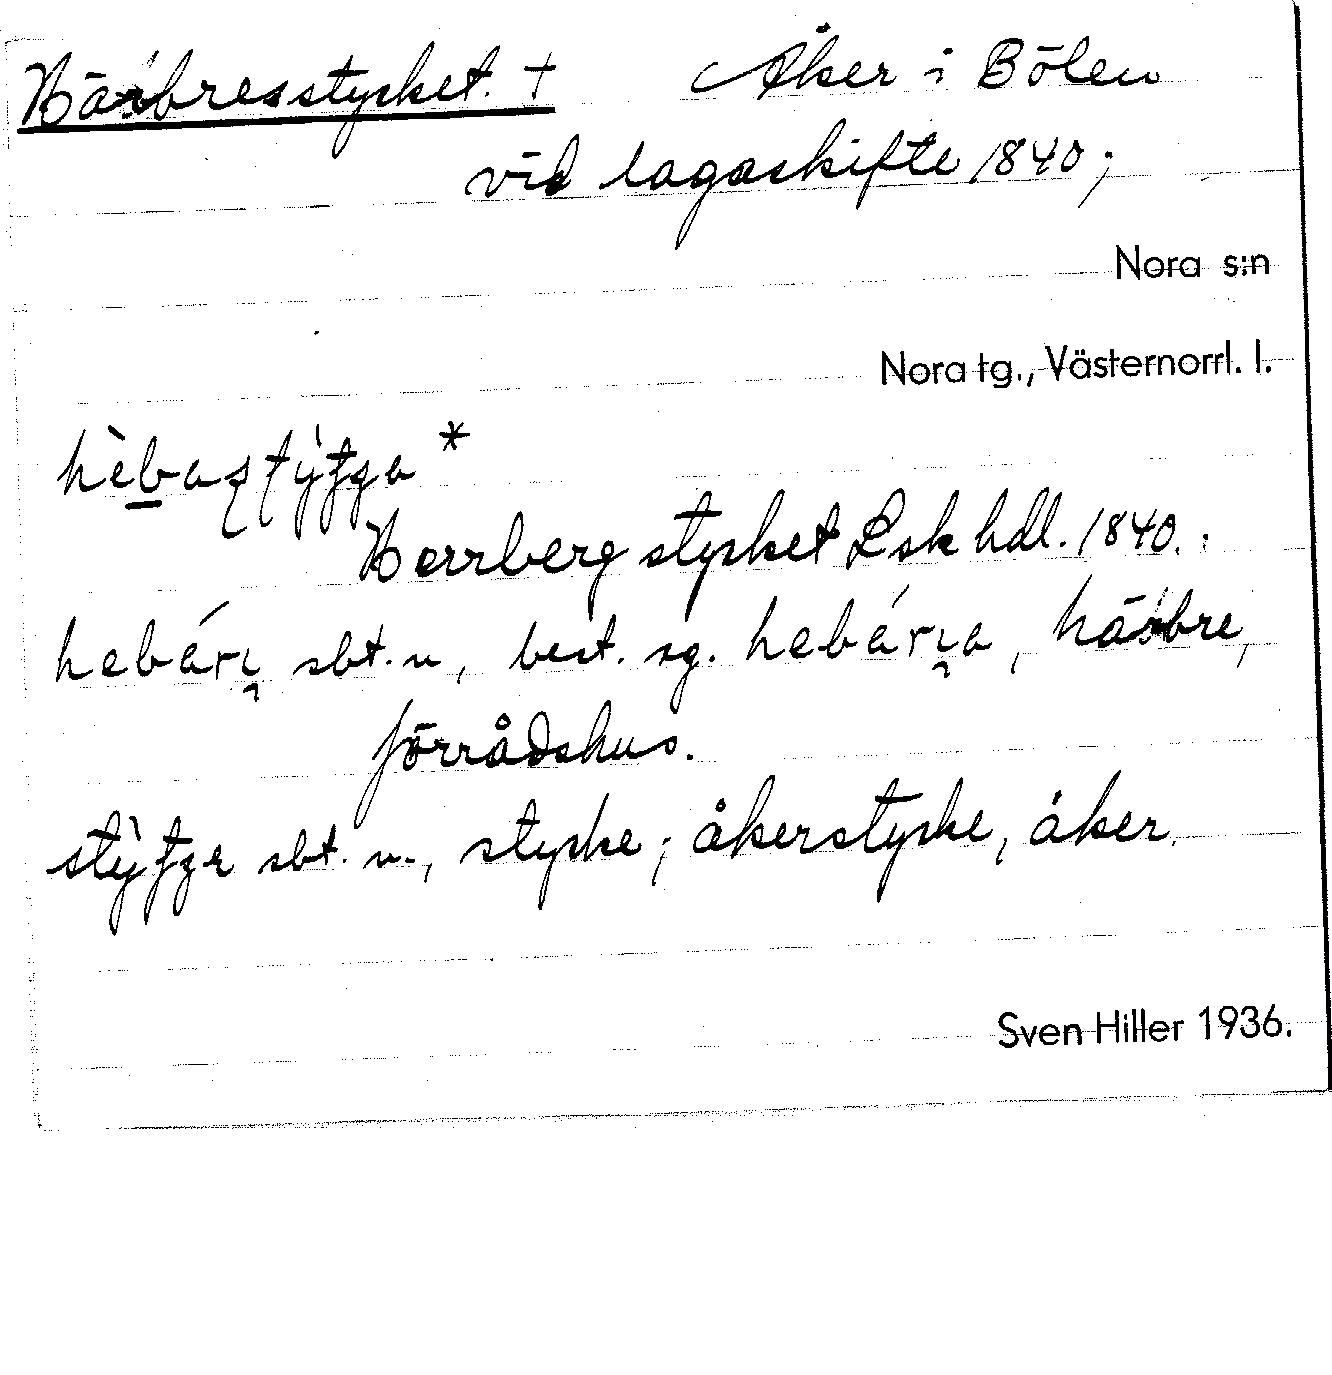 Härbresstycket. + Åker i Bölen
vid lagaskifte 1840;
Nora s:n
Nora tg., Västernorrl. l.
*
Herrberg stycket Lsk hdl. 1840.
sbt. n, best. sg. härbre,
förrådshus.
sbt. n., stycke; åkerstycke, åker.
Sven Hiller 1936.